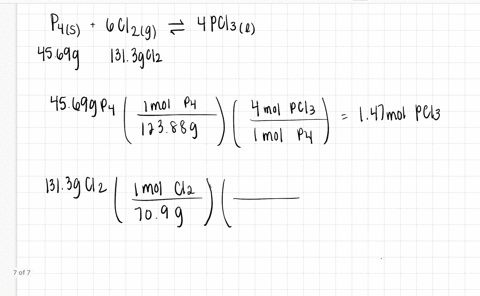 P4(s) + 6Cl2(g) ⇌ 4PCl3(l)
45.69g 131.3gCl2
45.69gP4 (1mol P4 / 123.88g) (4mol PCl3 / 1mol P4) = 1.47mol PCl3
131.3gCl2 (1mol Cl2 / 70.9g) (
7 of 7